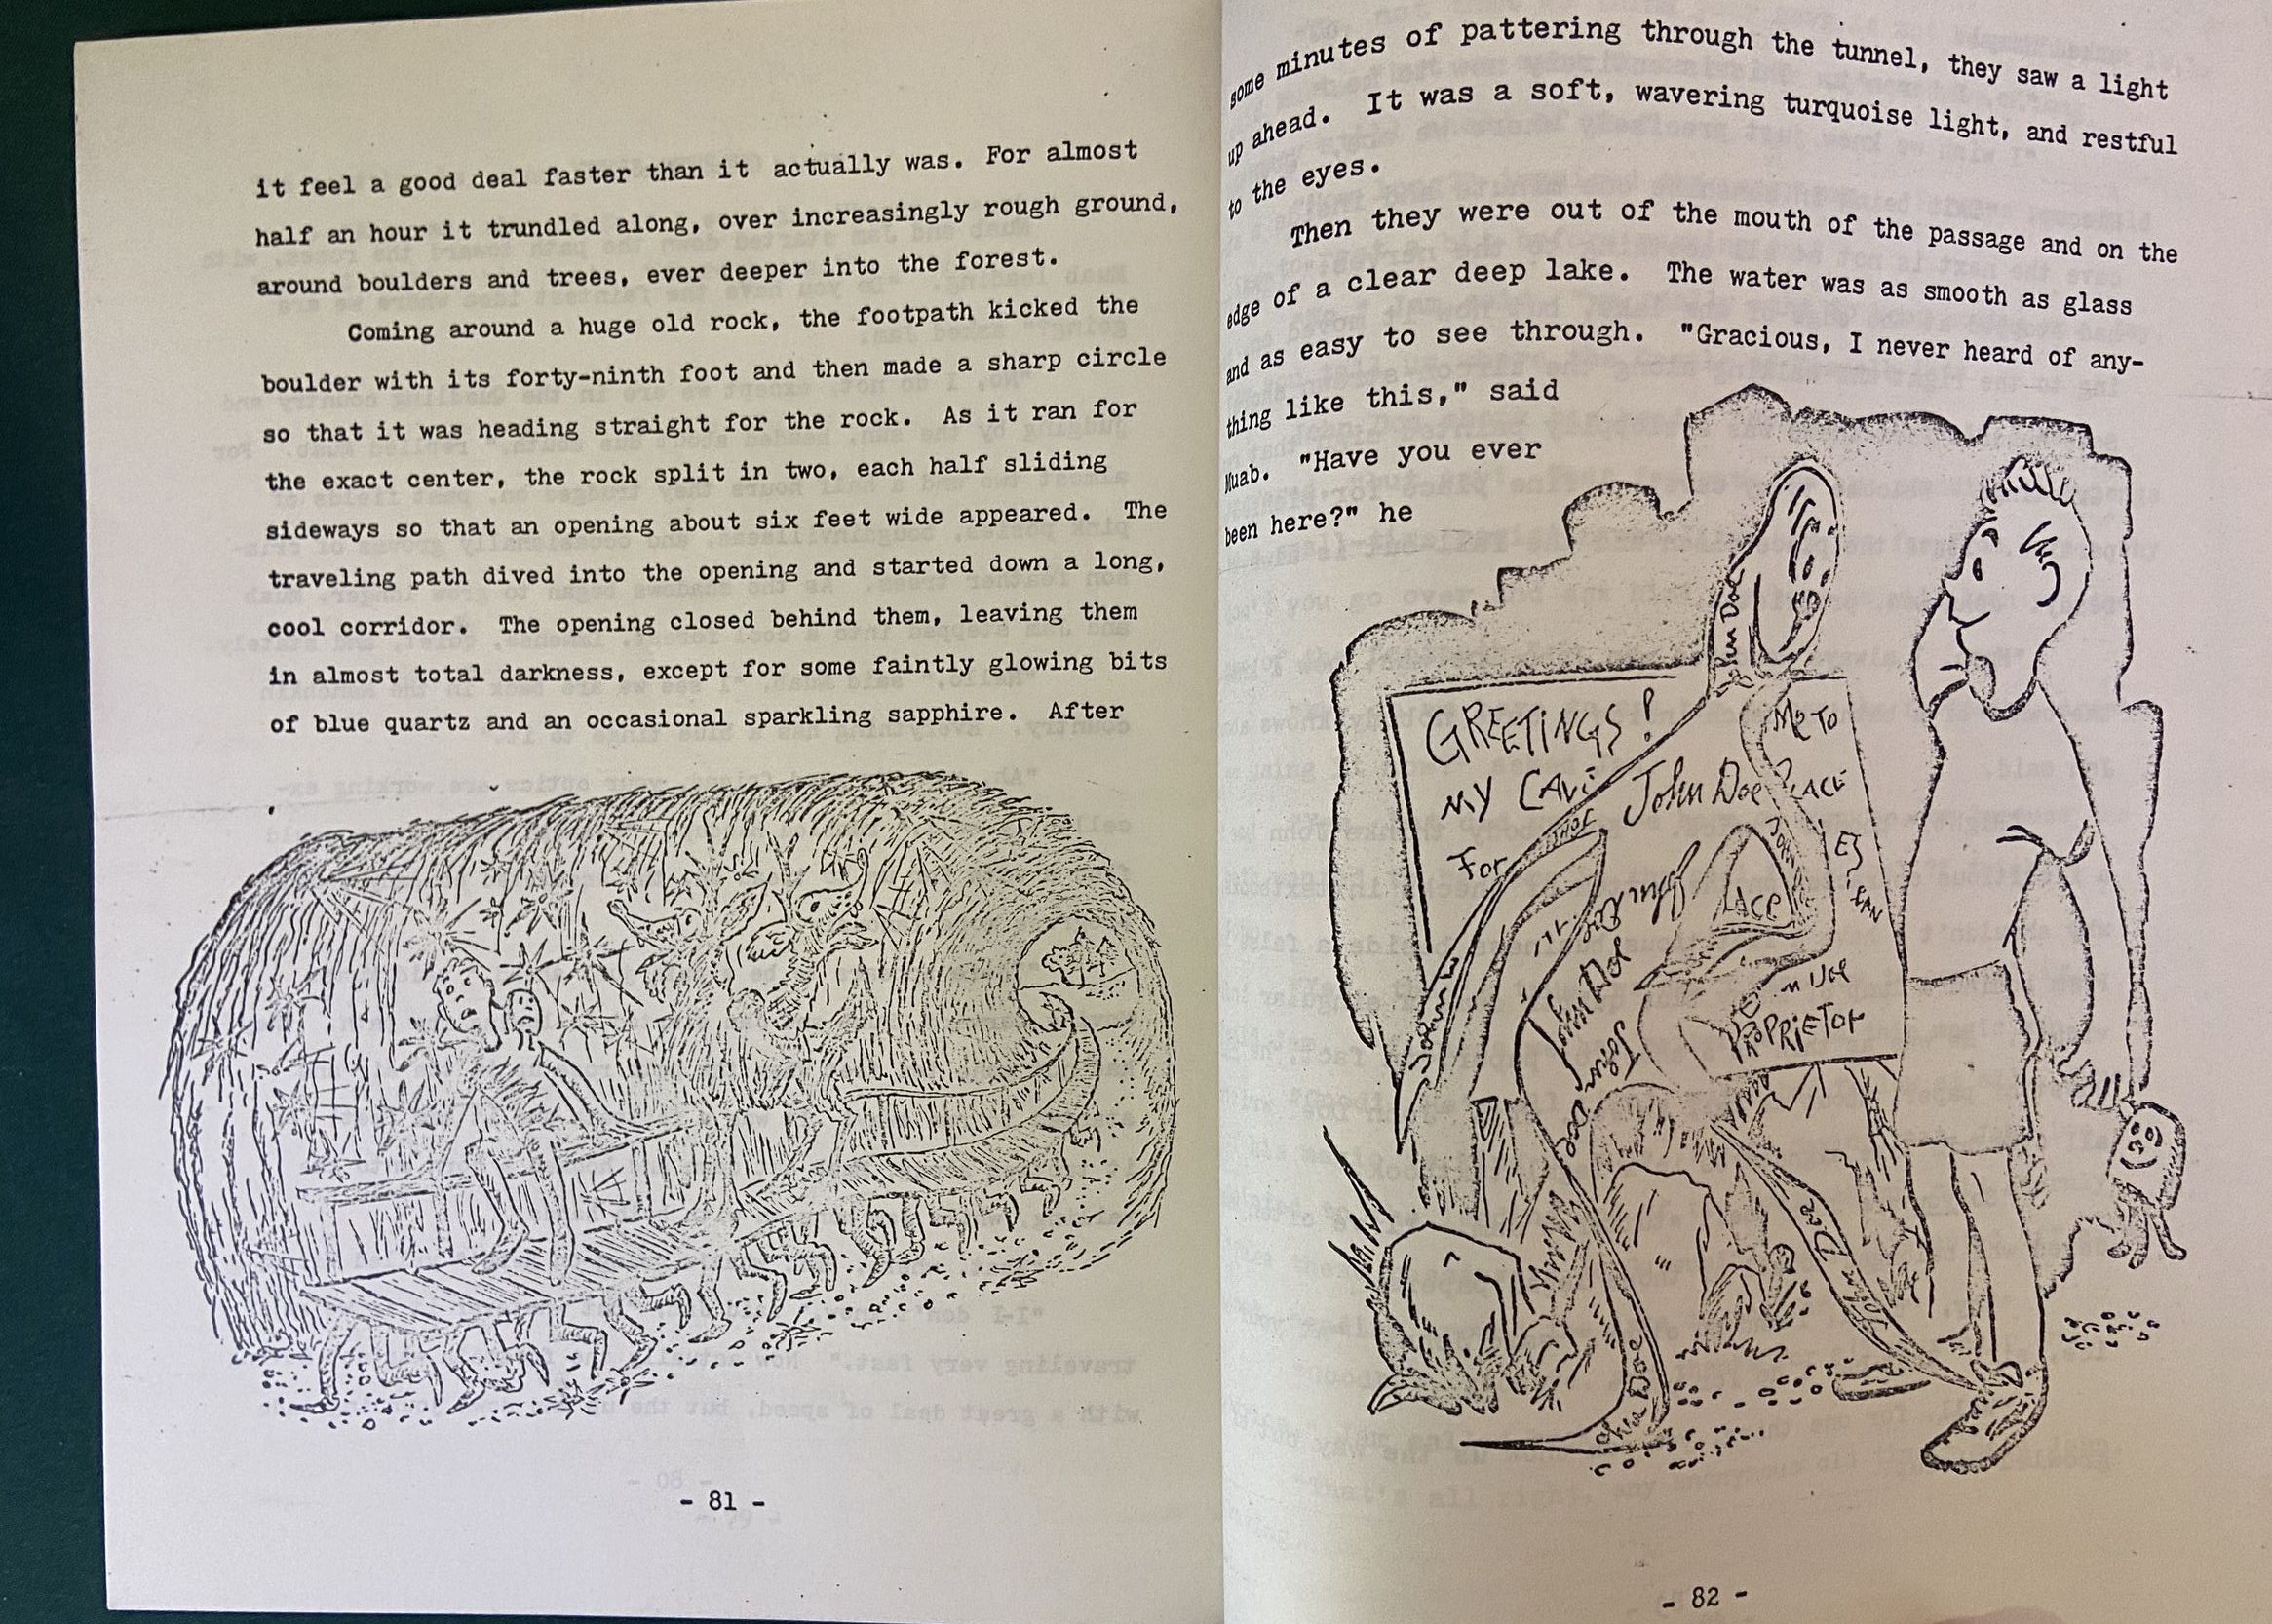 it feel a good deal faster than it actually was. For almost
half an hour it trundled along, over increasingly rough ground,
around boulders and trees, ever deeper into the forest.
Coming around a huge old rock, the footpath kicked the
boulder with its forty-ninth foot and then made a sharp circle
so that it was heading straight for the rock. As it ran for
the exact center, the rock split in two, each half sliding
sideways so that an opening about six feet wide appeared. The
traveling path dived into the opening and started down a long,
cool corridor. The opening closed behind them, leaving them
in almost total darkness, except for some faintly glowing bits
of blue quartz and an occasional sparkling sapphire. After
- 81 -
some minutes of pattering through the tunnel, they saw a light
up ahead. It was a soft, wavering turquoise light, and restful
to the eyes.
Then they were out of the mouth of the passage and on the
edge of a clear deep lake. The water was as smooth as glass
and as easy to see through. "Gracious, I never heard of any-
thing like this," said
Muab. "Have you ever
been here?" he
John Doe
GREETINGS!
Me To
MY
John Doe
For
John
John Doe
John Doe
John Doe
PROPRIETOR
John Doe
John Doe
- 82 -